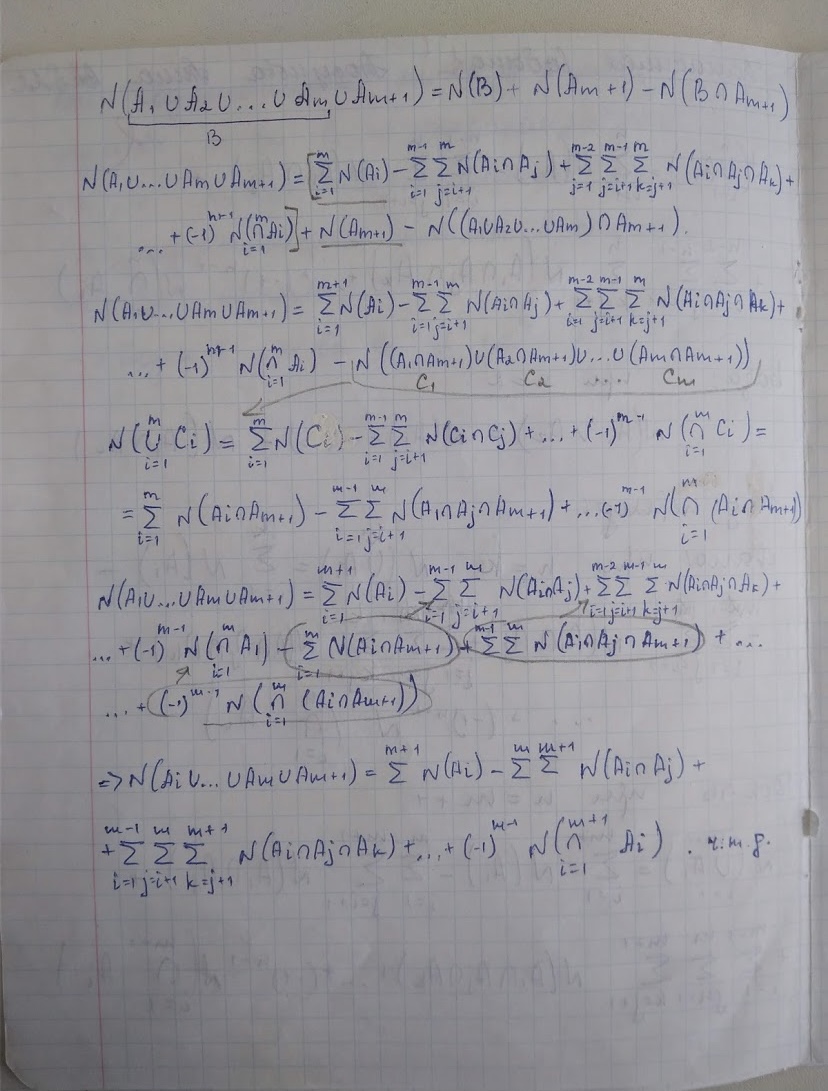 N(A₁ ∪ A₂ ∪ ... ∪ Am ∪ Am+1) = N(B) + N(Am+1) − N(B ∩ Am+1)
B
N(A₁∪...∪Am∪Am+1) = [∑_{i=1}^{m} N(Ai) − ∑_{i=1}^{m-1} ∑_{j=i+1}^{m} N(Ai∩Aj) + ∑_{j=1}^{m-2} ∑_{j=i+1}^{m-1} ∑_{k=j+1}^{m} N(Ai∩Aj∩Ak) +
... + (-1)^{m-1} N(∩_{i=1}^{m} Ai)] + N(Am+1) − N((A₁∪A₂∪...∪Am) ∩ Am+1).
N(A₁∪...∪Am∪Am+1) = ∑_{i=1}^{m+1} N(Ai) − ∑_{i=1}^{m-1} ∑_{j=i+1}^{m} N(Ai∩Aj) + ∑_{i=1}^{m-2} ∑_{j=i+1}^{m-1} ∑_{k=j+1}^{m} N(Ai∩Aj∩Ak) +
... + (-1)^{m-1} N(∩_{i=1}^{m} Ai) − N((A₁∩Am+1)∪(A₂∩Am+1)∪...∪(Am∩Am+1))
C₁ C₂ ... Cm
N(∪_{i=1}^{m} Ci) = ∑_{i=1}^{m} N(Ci) − ∑_{i=1}^{m-1} ∑_{j=i+1}^{m} N(Ci∩Cj) + ... + (-1)^{m-1} N(∩_{i=1}^{m} Ci) =
= ∑_{i=1}^{m} N(Ai∩Am+1) − ∑_{i=1}^{m-1} ∑_{j=i+1}^{m} N(A₁∩Aj∩Am+1) + ...(-1)^{m-1} N(∩_{i=1}^{m} (Ai∩Am+1))
N(A₁∪...∪Am∪Am+1) = ∑_{i=1}^{m+1} N(Ai) − ∑_{i=1}^{m-1} ∑_{j=i+1}^{m} N(Ai∩Aj) + ∑_{i=1}^{m-2} ∑_{j=i+1}^{m-1} ∑_{k=j+1}^{m} N(Ai∩Aj∩Ak) +
... + (-1)^{m-1} N(∩_{i=1}^{m} A₁) − ∑_{i=1}^{m} N(Ai∩Am+1) + ∑^{m-1} ∑^{m} N(Ai∩Aj∩Am+1) + ...
... + (-1)^{m-1} N(∩_{i=1}^{m} (Ai∩Am+1))
=> N(Ai∪...∪Am∪Am+1) = ∑^{m+1} N(Ai) − ∑^{m} ∑^{m+1} N(Ai∩Aj) +
+ ∑_{i=1}^{m-1} ∑_{j=i+1}^{m} ∑_{k=j+1}^{m+1} N(Ai∩Aj∩Ak) + ... + (-1)^{m-1} N(∩_{i=1}^{m+1} Ai). ч.т.д.